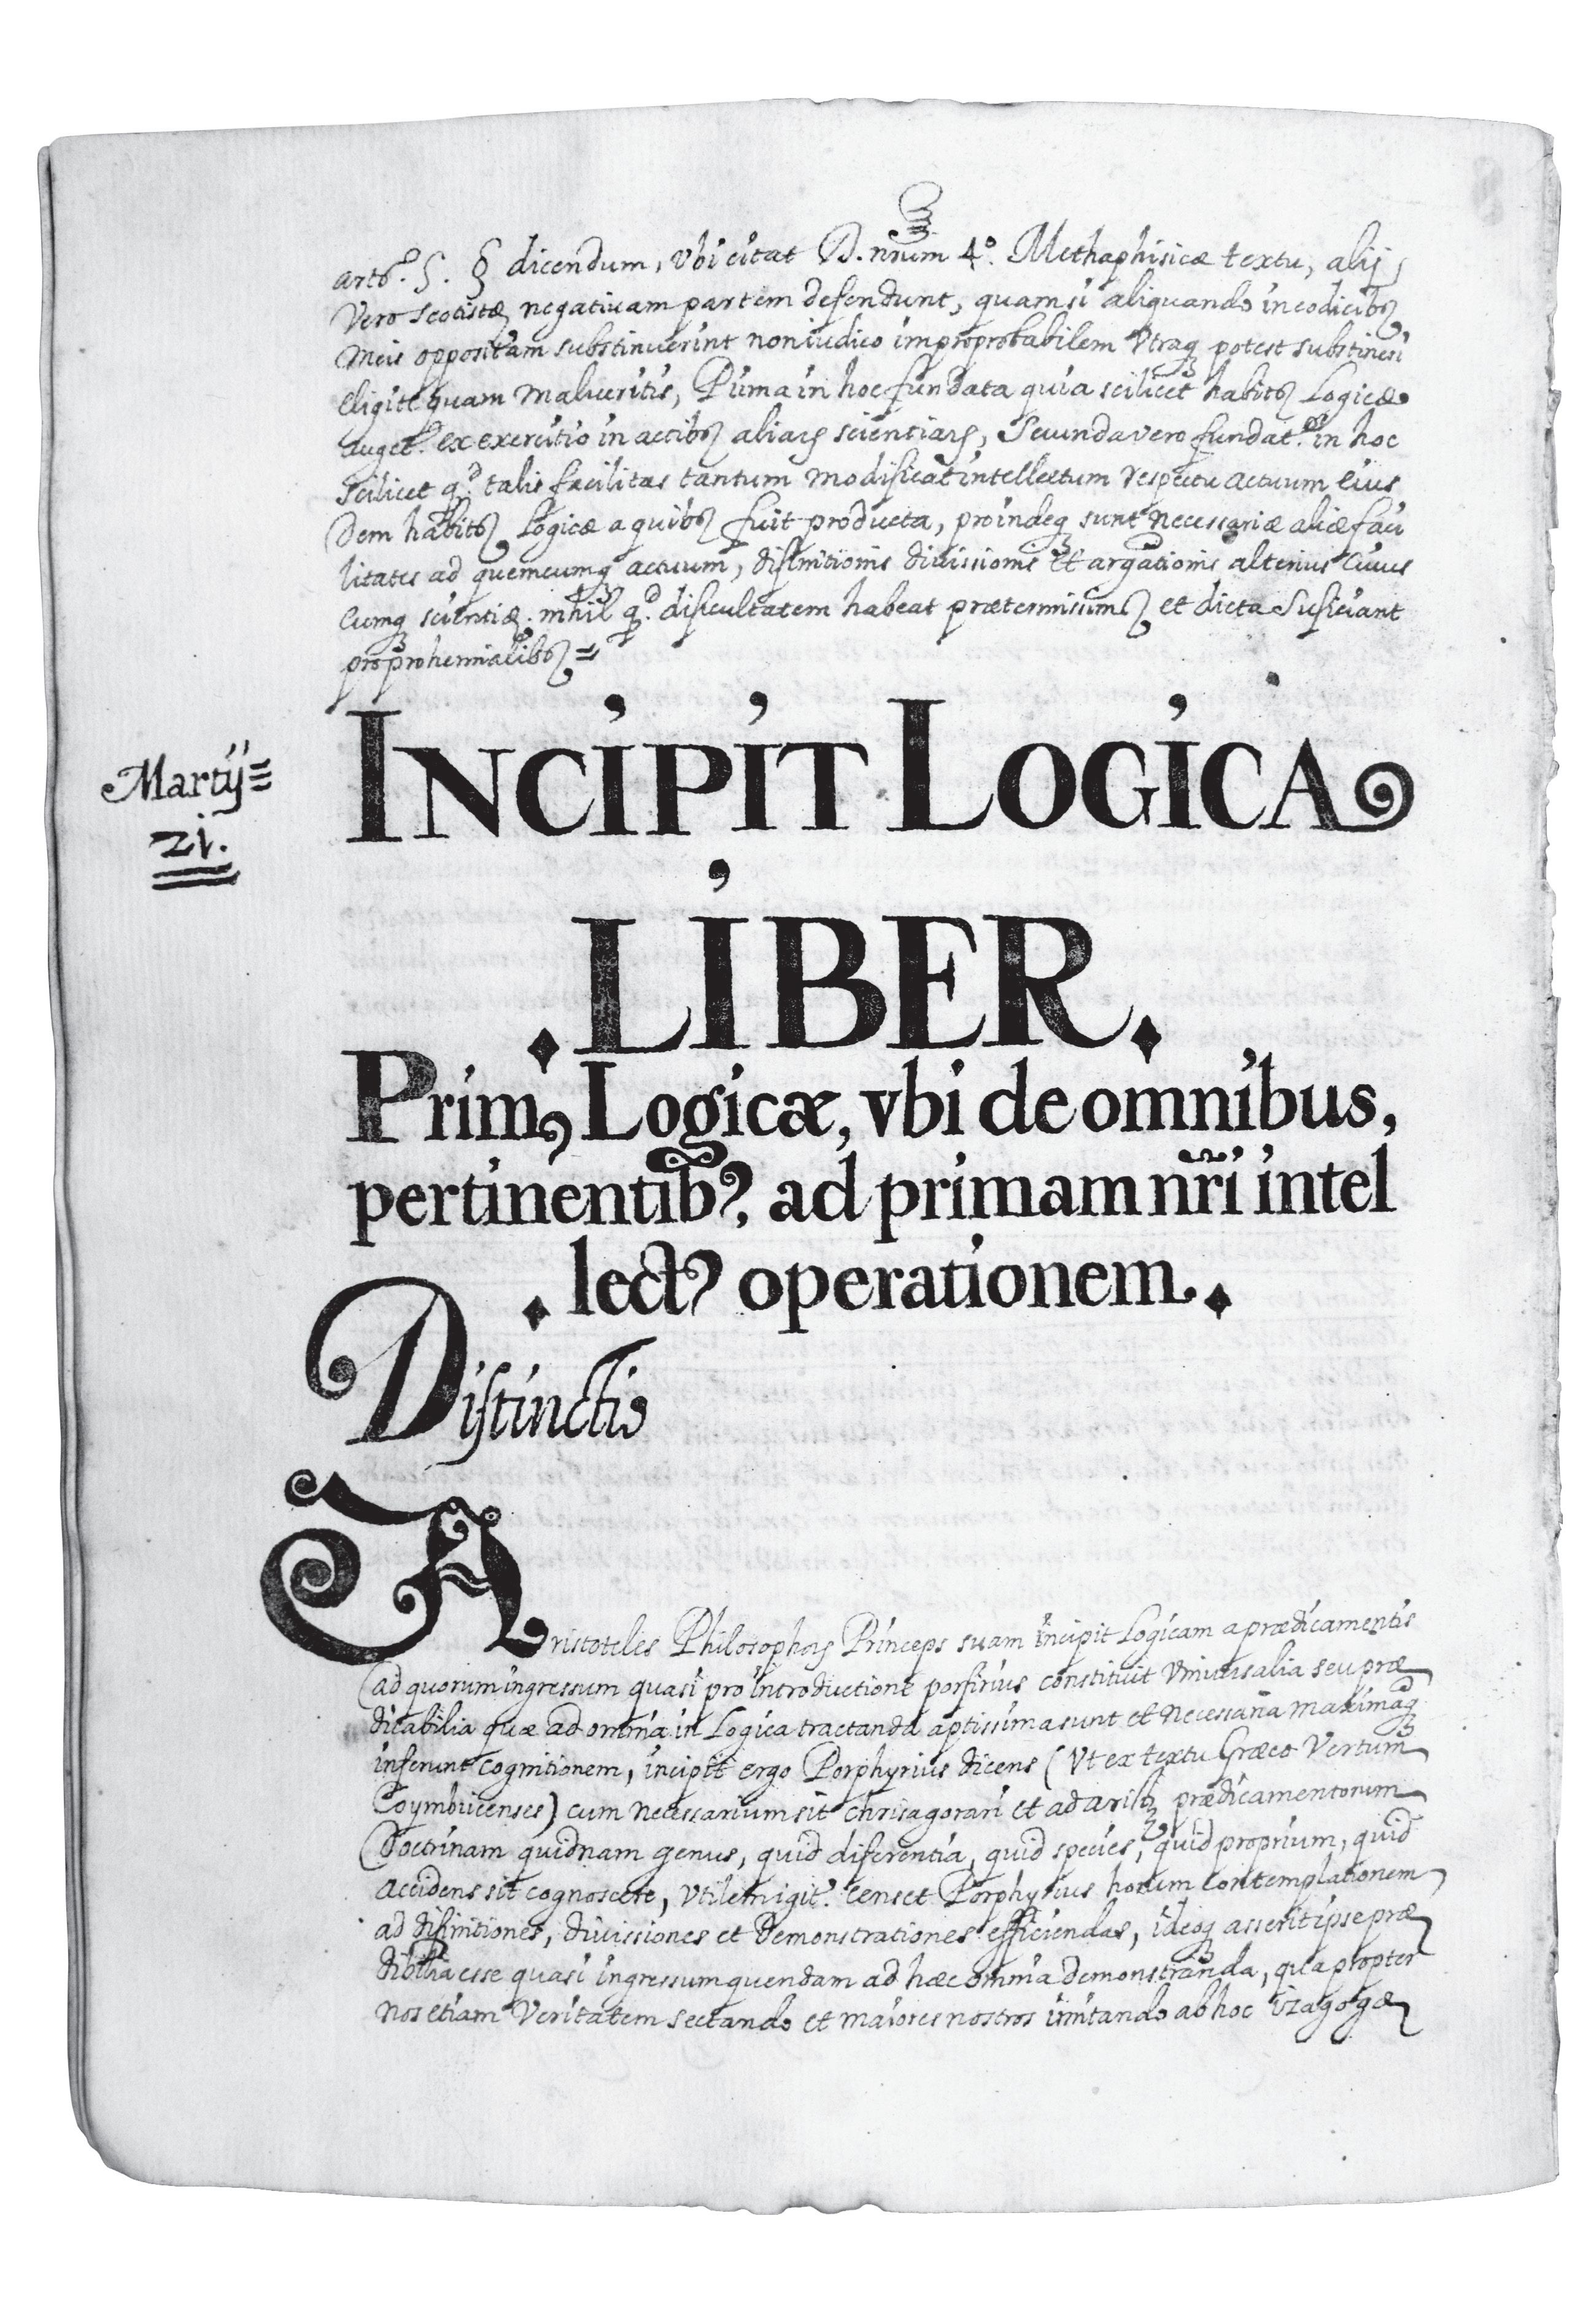 artᵒ. 5. § dicendum, vbi citat D. nrum 4º. Methaphisicæ textu, alij
vero scotistæ negatiuam partem defendunt, quam si aliquando in codicibꝰ
meis oppositam substinuerint non iudico improprobabilem vtraqꝫ potest substineri
eligite quam malueritis, Prima in hoc fundata quia scilicet habitꝰ Logicæ
auget.ʳ ex exercitio in actibꝰ aliarꝝ scientiarꝝ, Secunda vero fundat.ʳ in hoc
scilicet q.ᵈ talis facilitas tantum modificat intellectum respectu actuum eius
dem habitꝰ Logicæ a quibꝰ fuit producta, proindeqꝫ sunt necessariæ aliæ faci
litates ad quemcumqꝫ actuum, difinitionis diuissionis et argᵃtionis alterius cuius
cumqꝫ scientiæ. nihil q.ᵈ dificultatem habeat prætermissimꝰ et dicta suficiant
pro prohemialibꝰ =
Martij =
21.
INCIPIT LOGICA
LIBER.
Primꝰ Logicæ, vbi de omnibus,
pertinentibꝰ, ad primam nr̃i intel
lectꝰ operationem.
Distinctio
Aristoteles Philosophorꝝ Princeps suam incipit Logicam a prædicamentis
ad quorum ingressum quasi pro introductione porfirius constituit vniuersalia seu præ
dicabilia quæ ad omnia in Logica tractanda aptissima sunt et necessaria maximāqꝫ
inferunt cognitionem, incipit ergo Porphyrius dicens (vt ex textu Græco vertum
Coymbricenses) cum necessarium sit chrisaorari et ad arislᵗ prædicamentorum
Doctrinam quidnam genus, quid diferentia, quid species, quid proprium, quid
accidens sit cognoscere, vtilem igit.ʳ censet Porphyrius horum contemplationem
ad difinitiones, diuissiones et demonstrationes efficiendas, ideoqꝫ asserit ipse præ
dibilia esse quasi ingressum quendam ad hæc omnia demonstranda, quapropter
nos etiam veritatem sectando et maiores nostros imitando ab hoc izagogæ